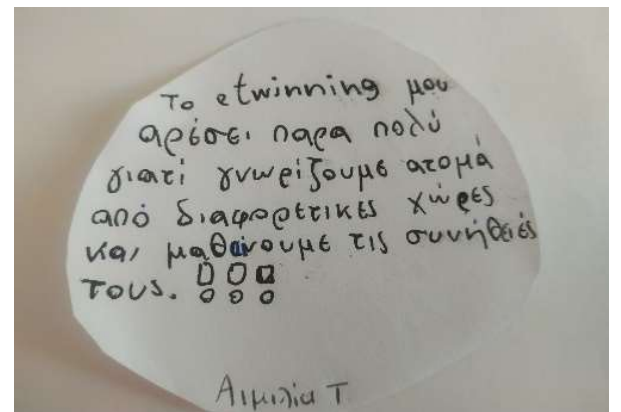 Το etwinning μου
αρέσει παρα πολύ
γιατί γνωρίζουμε ατομά
από διαφορετικές χώρες
και μαθαίνουμε τις συνήθειές
τους. !!!
Αιμιλία Τ